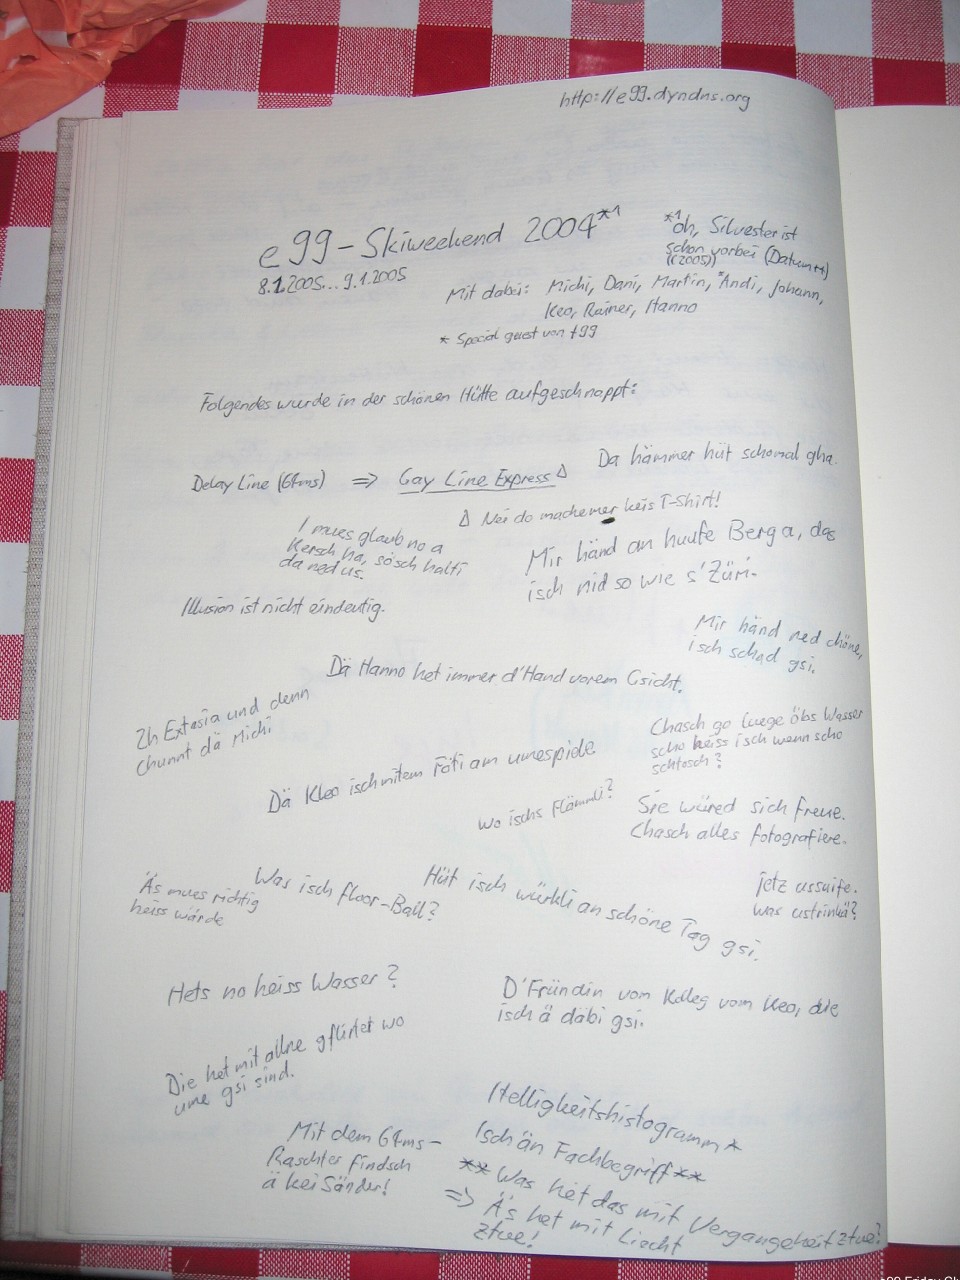 http://e99.dyndns.org
e99-Skiweekend 2004*1
8.1.2005...9.1.2005
*1 öh, Silvester ist
schon vorbei (Datum++)
((2005))
Mit dabei: Michi, Dani, Martin, *Andi, Johann,
Keo, Rainer, Hanno
* Special guest von t99
Folgendes wurde in der schönen Hütte aufgeschnappt:
Da hämmer hüt schomal gha.
Delay Line (64ms) => Gay Line Express Δ
Δ Nei do mache mer keis T-Shirt!
I mues glaub no a
Kersch ha, sösch halti
da ned us.
Mir händ an huufe Berg a, das
isch nid so wie s'Züri.
Illusion ist nicht eindeutig.
Mir händ ned chöne,
isch schad gsi.
Dä Hanno het immer d'Hand vorem Gsicht.
2h Extasia und denn
chunnt dä Michi
Chasch go luege öbs Wasser
scho heiss isch wenn scho
schtosch?
Dä Kleo isch mitem Föti am umespiele
wo ischs Flämmli?
Sie würed sich freue.
Chasch alles fotografiere.
Äs mues richtig
heiss wärde
Was isch floor-Ball?
Hüt isch würkli an schöne Tag gsi.
jetz ussuife.
was ustrinkä?
Hets no heiss Wasser?
D'Fründin vom Kolleg vom Keo, die
isch ä däbi gsi.
Die het mit allne gflirtet wo
ume gsi sind.
Helligkeitshistogramm*
Isch än Fachbegriff**
** Was het das mit Vergangeheit ztue?
=> Äs het mit Liecht
ztue!
Mit dem 64ms-
Raschter findsch
ä kei Sänder!